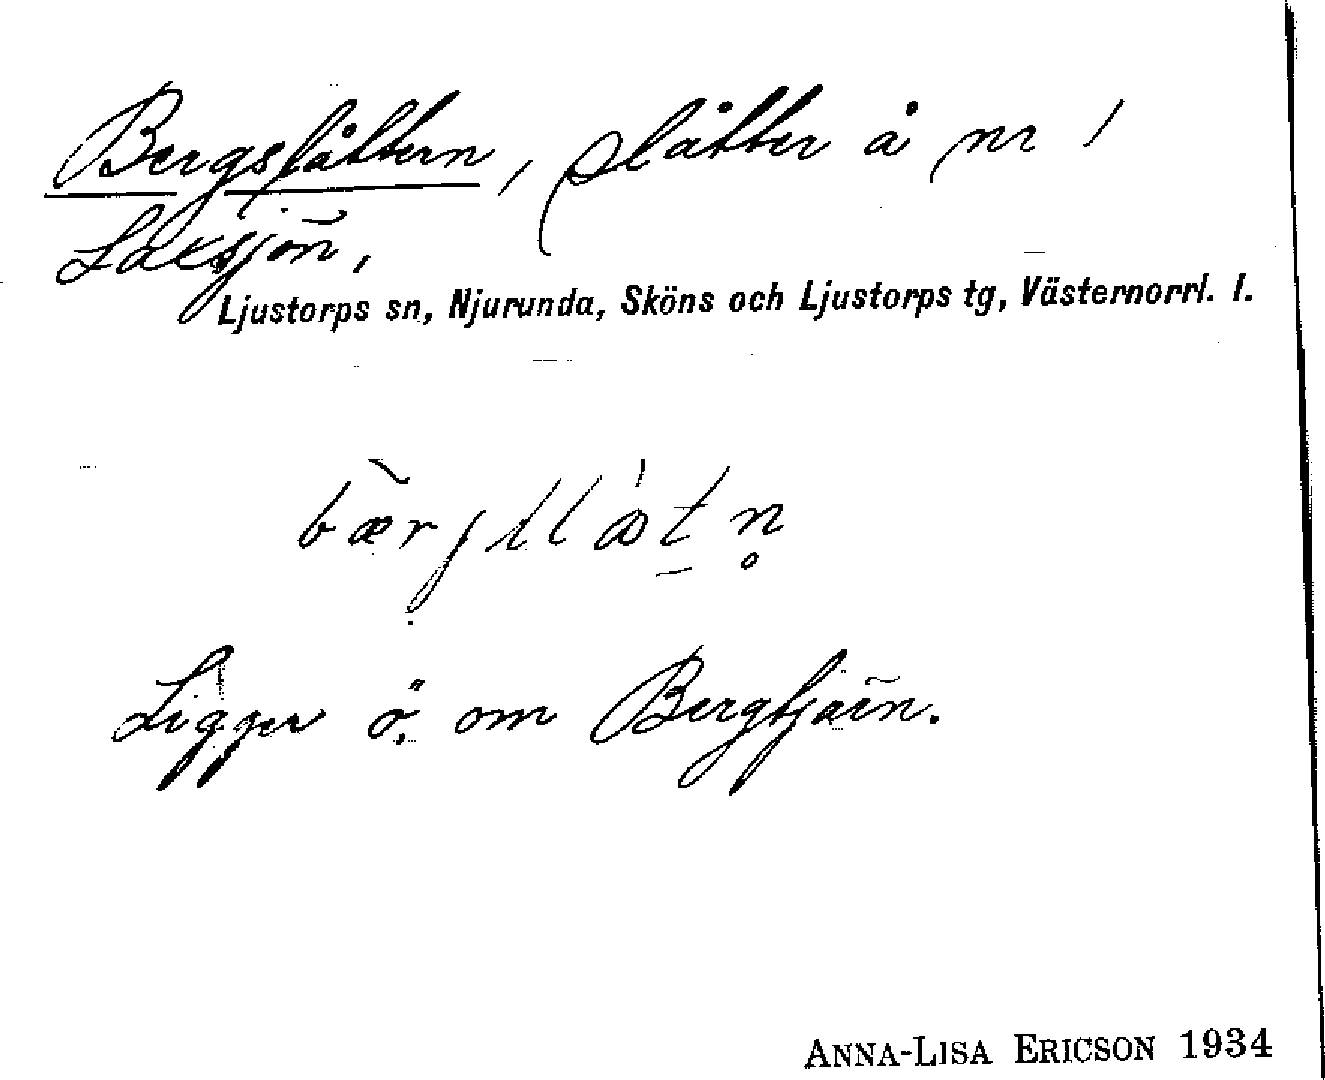 Bergslåttern, slåtter å nr 1
Laxsjön,
Ljustorps sn, Njurunda, Sköns och Ljustorps tg, Västernorrl. l.
Ligger ö. om Bergtjärn.
ANNA-LISA ERICSON 1934